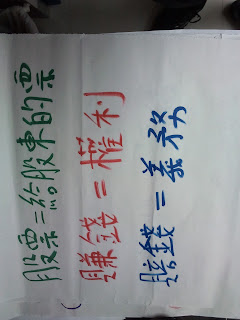 股票=給股東的票
賺錢=權利
賠錢=義務